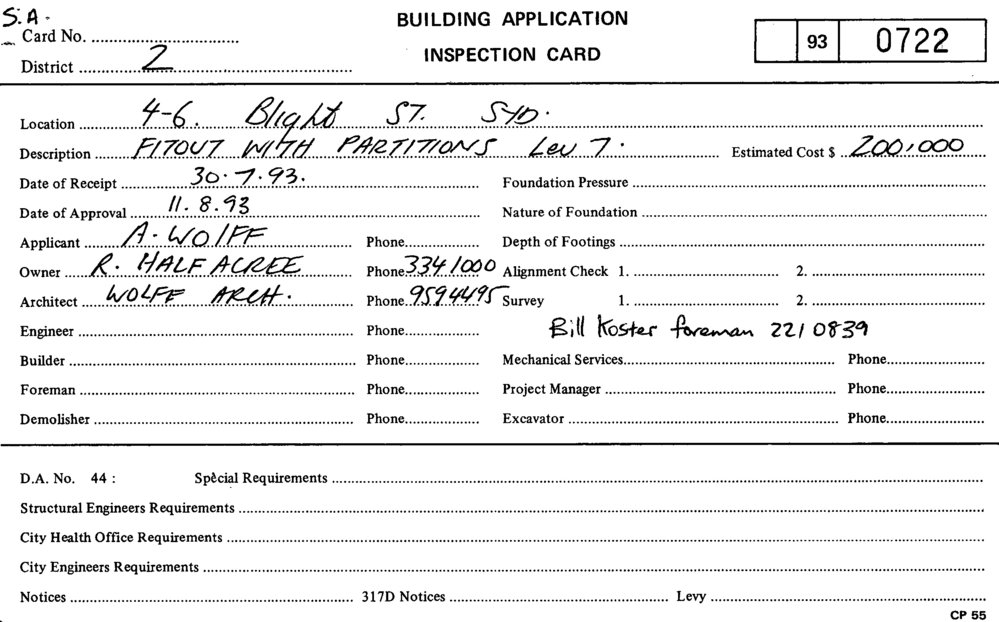 S.A.
BUILDING APPLICATION
INSPECTION CARD
93 0722
Card No.
District 2
Location 4-6. Blight ST. SYD.
Description FITOUT WITH PARTITIONS Lev 7. Estimated Cost $ 200,000
Date of Receipt 30.7.93. Foundation Pressure
Date of Approval 11.8.93 Nature of Foundation
Applicant A. WOLFF Phone Depth of Footings
Owner R. HALF ACREE Phone 334 1000 Alignment Check 1. 2.
Architect WOLFF ARCH. Phone 9594495 Survey 1. 2.
Engineer Phone Bill Koster foreman 221 0839
Builder Phone Mechanical Services Phone
Foreman Phone Project Manager Phone
Demolisher Phone Excavator Phone
D.A. No. 44 : Special Requirements
Structural Engineers Requirements
City Health Office Requirements
City Engineers Requirements
Notices 317D Notices Levy
CP 55